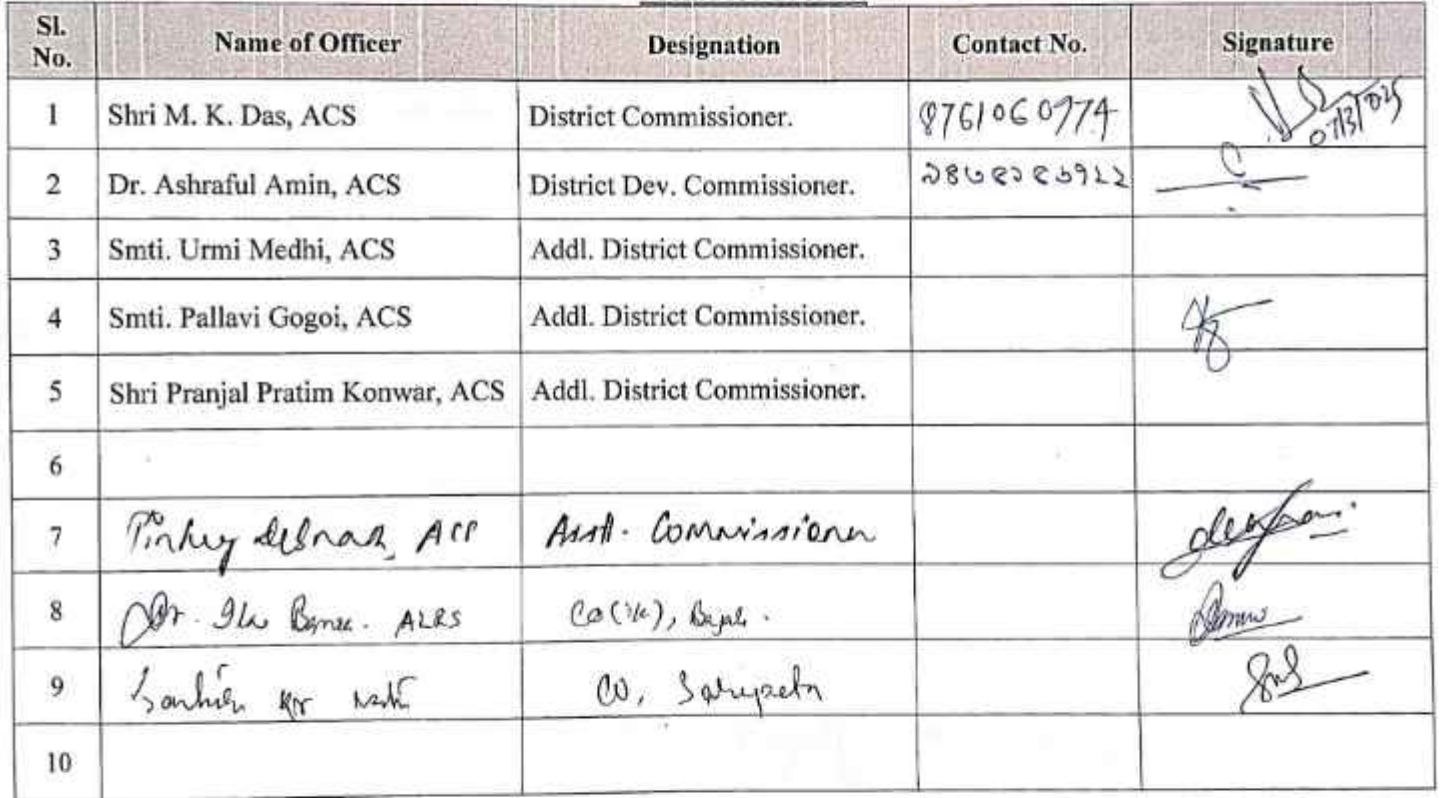 Sl. No. Name of Officer Designation Contact No. Signature
1 Shri M. K. Das, ACS District Commissioner. 8761060774
07/3/025
2 Dr. Ashraful Amin, ACS District Dev. Commissioner.
3 Smti. Urmi Medhi, ACS Addl. District Commissioner.
4 Smti. Pallavi Gogoi, ACS Addl. District Commissioner.
5 Shri Pranjal Pratim Konwar, ACS Addl. District Commissioner.
6
7 Debnath, ACS Asstt. Commissioner
8 Dr. ALRS Bajali.
9 CO,
10